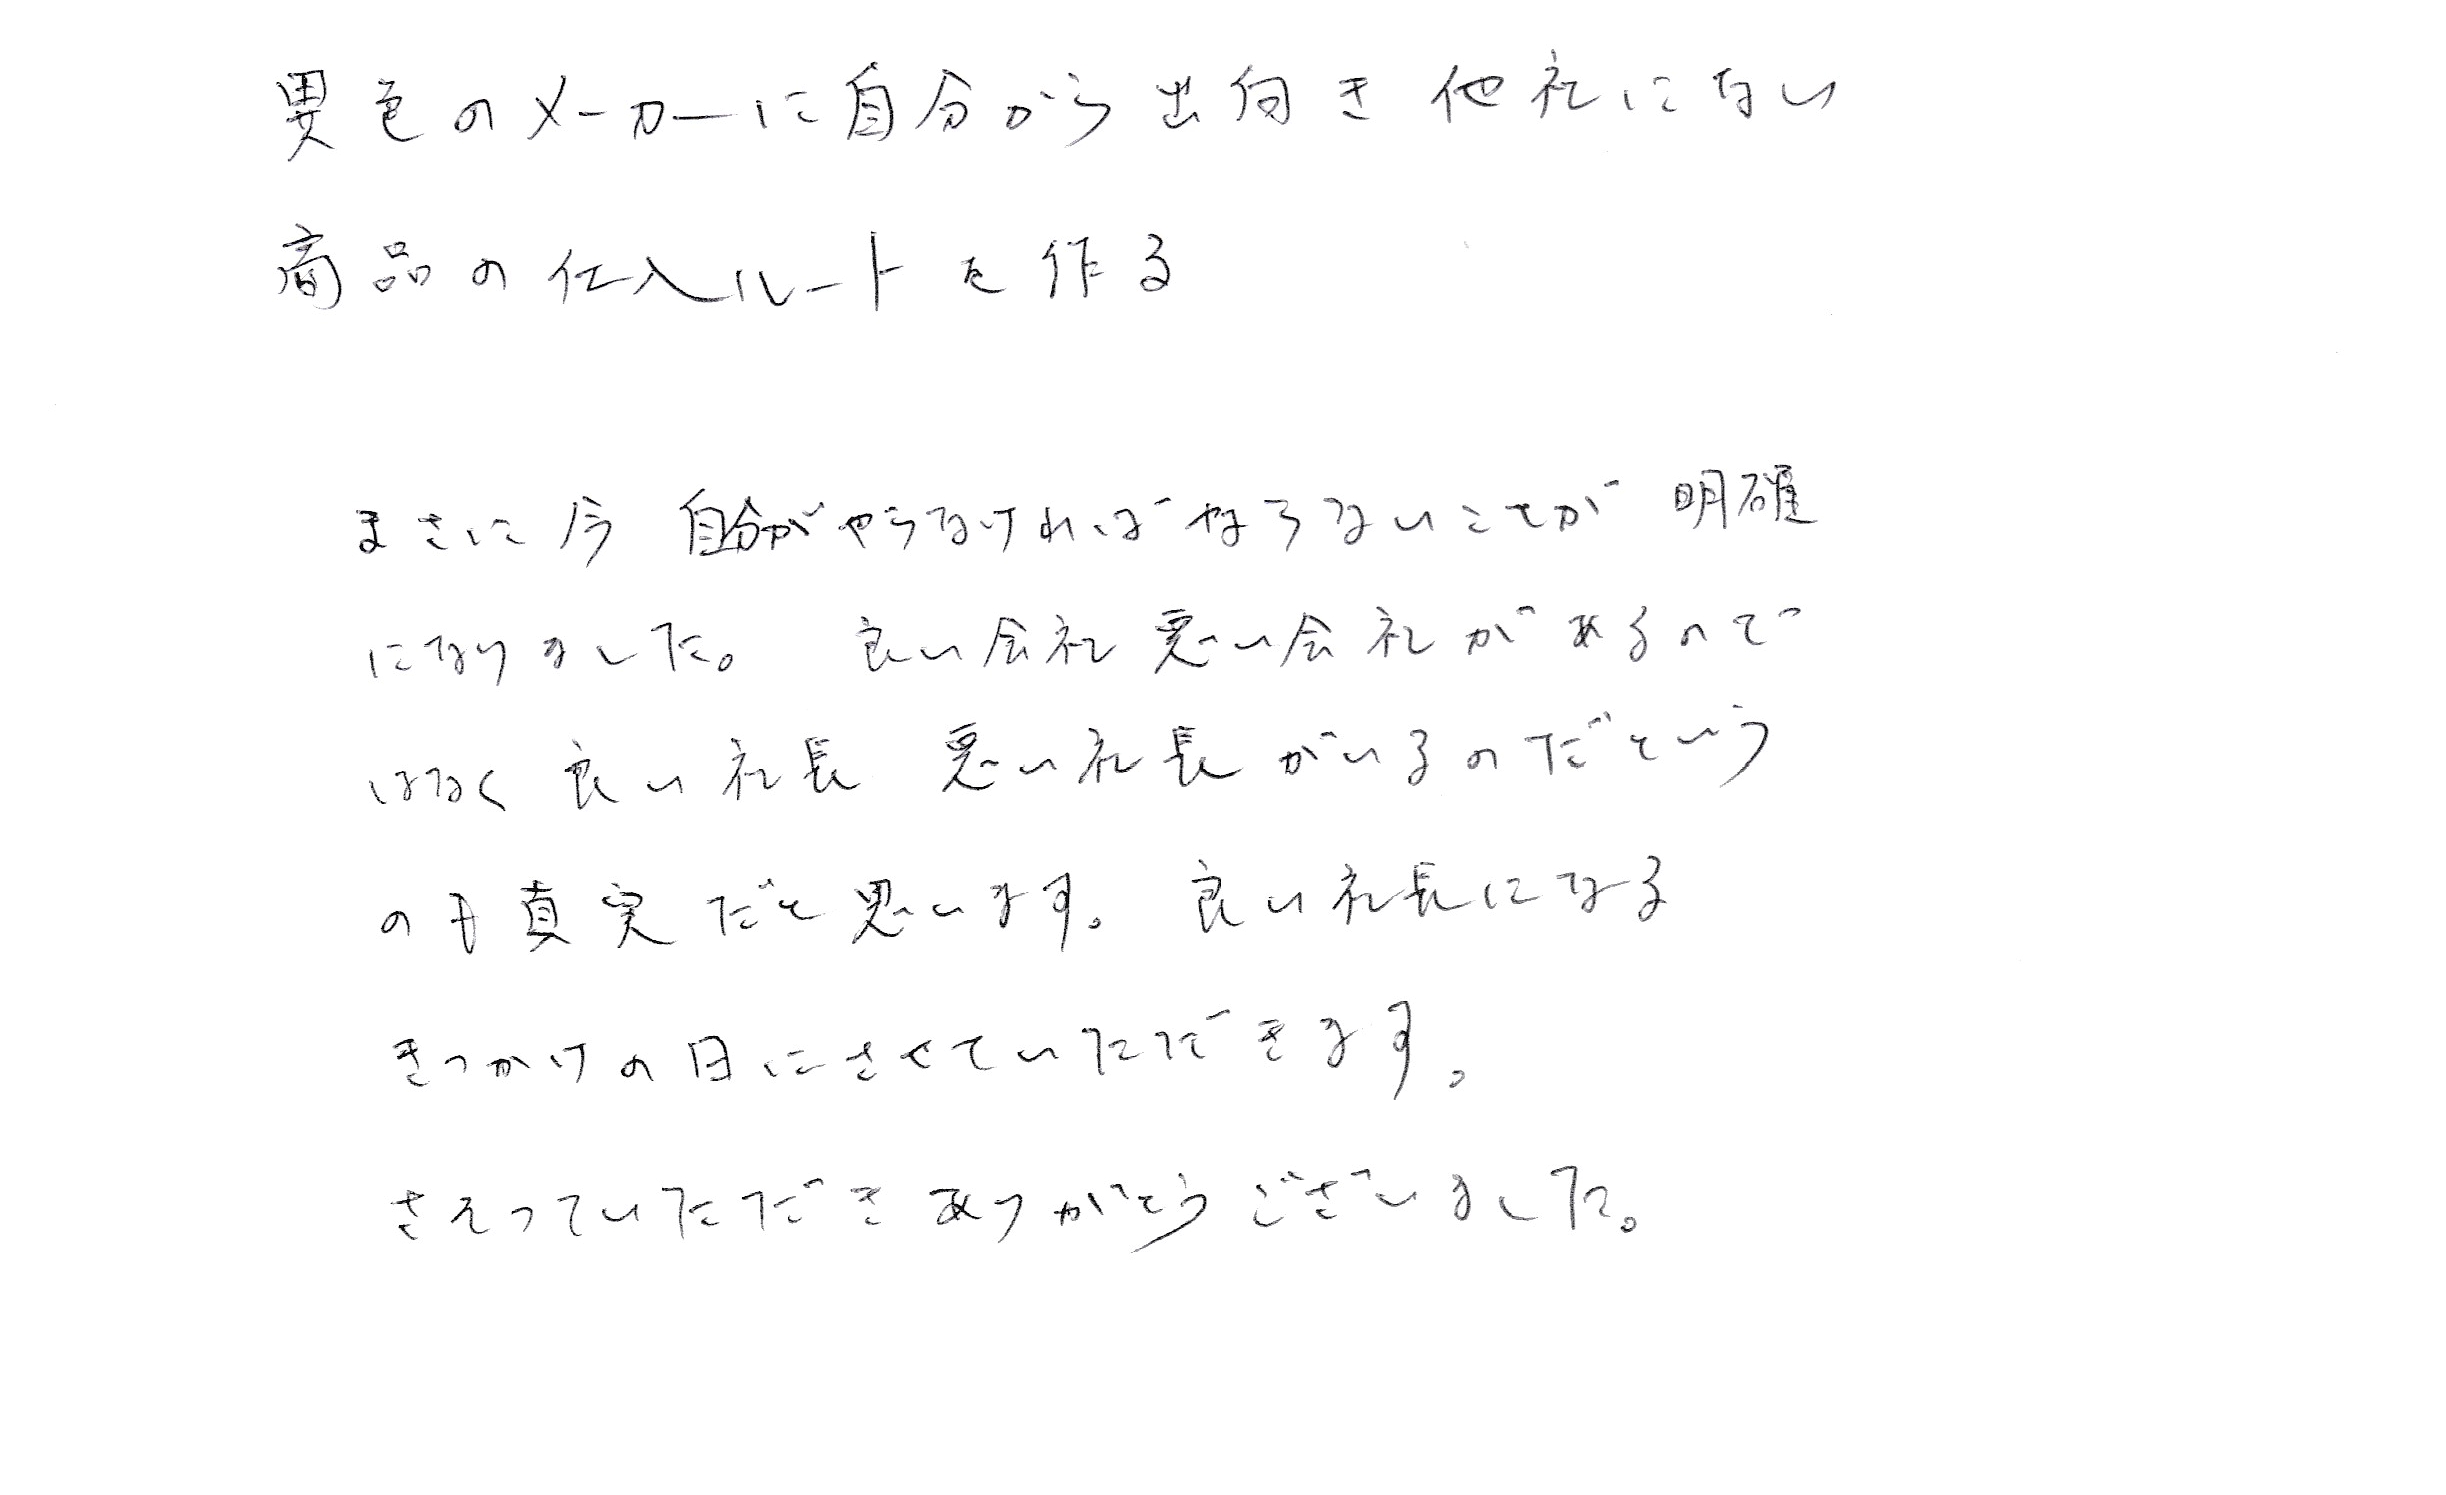 異色のメーカーに自分から出向き他社にない
商品の仕入ルートを作る
まさに今 自分がやらなければならないことが明確
になりました。 良い会社悪い会社があるので
はなく良い社長 悪い社長がいるのだという
のも真実だと思います。良い社長になる
きっかけの日にさせていただきます。
さそっていただきありがとうございました。